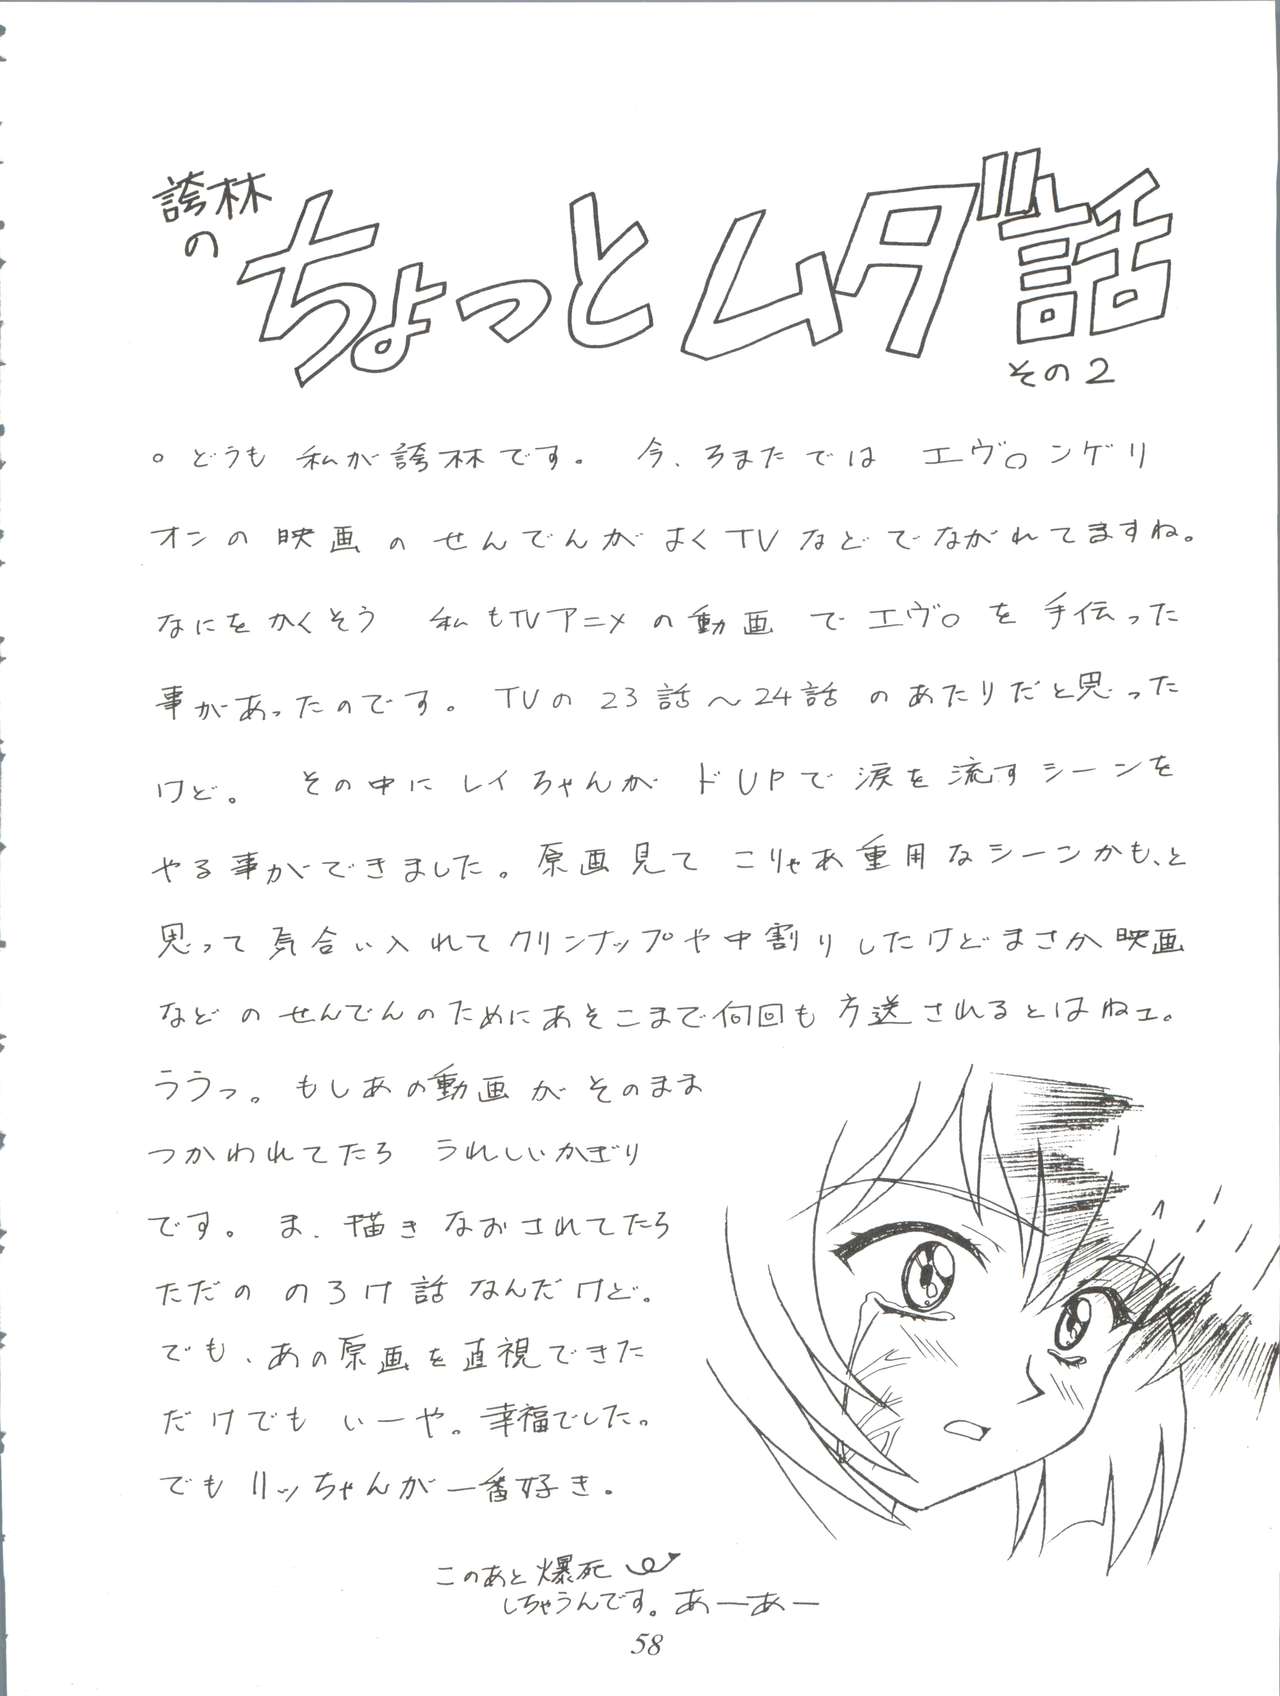 誇林
の
ちょっとムダ話
その2
○どうも 私が誇林です。 今、ろまたでは エヴ○ンゲリ
オンの映画のせんでんがよくTVなどでながれてますね。
なにをかくそう 私もTVアニメの動画でエヴ○を手伝った
事があったのです。TVの23話〜24話のあたりだと思った
けど。 その中にレイちゃんがドUPで涙を流すシーンを
やる事ができました。原画見てこりゃあ重用なシーンかも、と
思って気合い入れてクリンナップや中割りしたけどまさか映画
などのせんでんのためにあそこまで何回も方送されるとはねェ。
ううっ。もしあの動画がそのまま
つかわれてたら うれしいかぎり
です。ま、描きなおされてたら
ただの のろけ話なんだけど。
でも、あの原画を直視できた
だけでも いーや。幸福でした。
でもリッちゃんが一番好き。
このあと爆死
しちゃうんです。あーあー
58